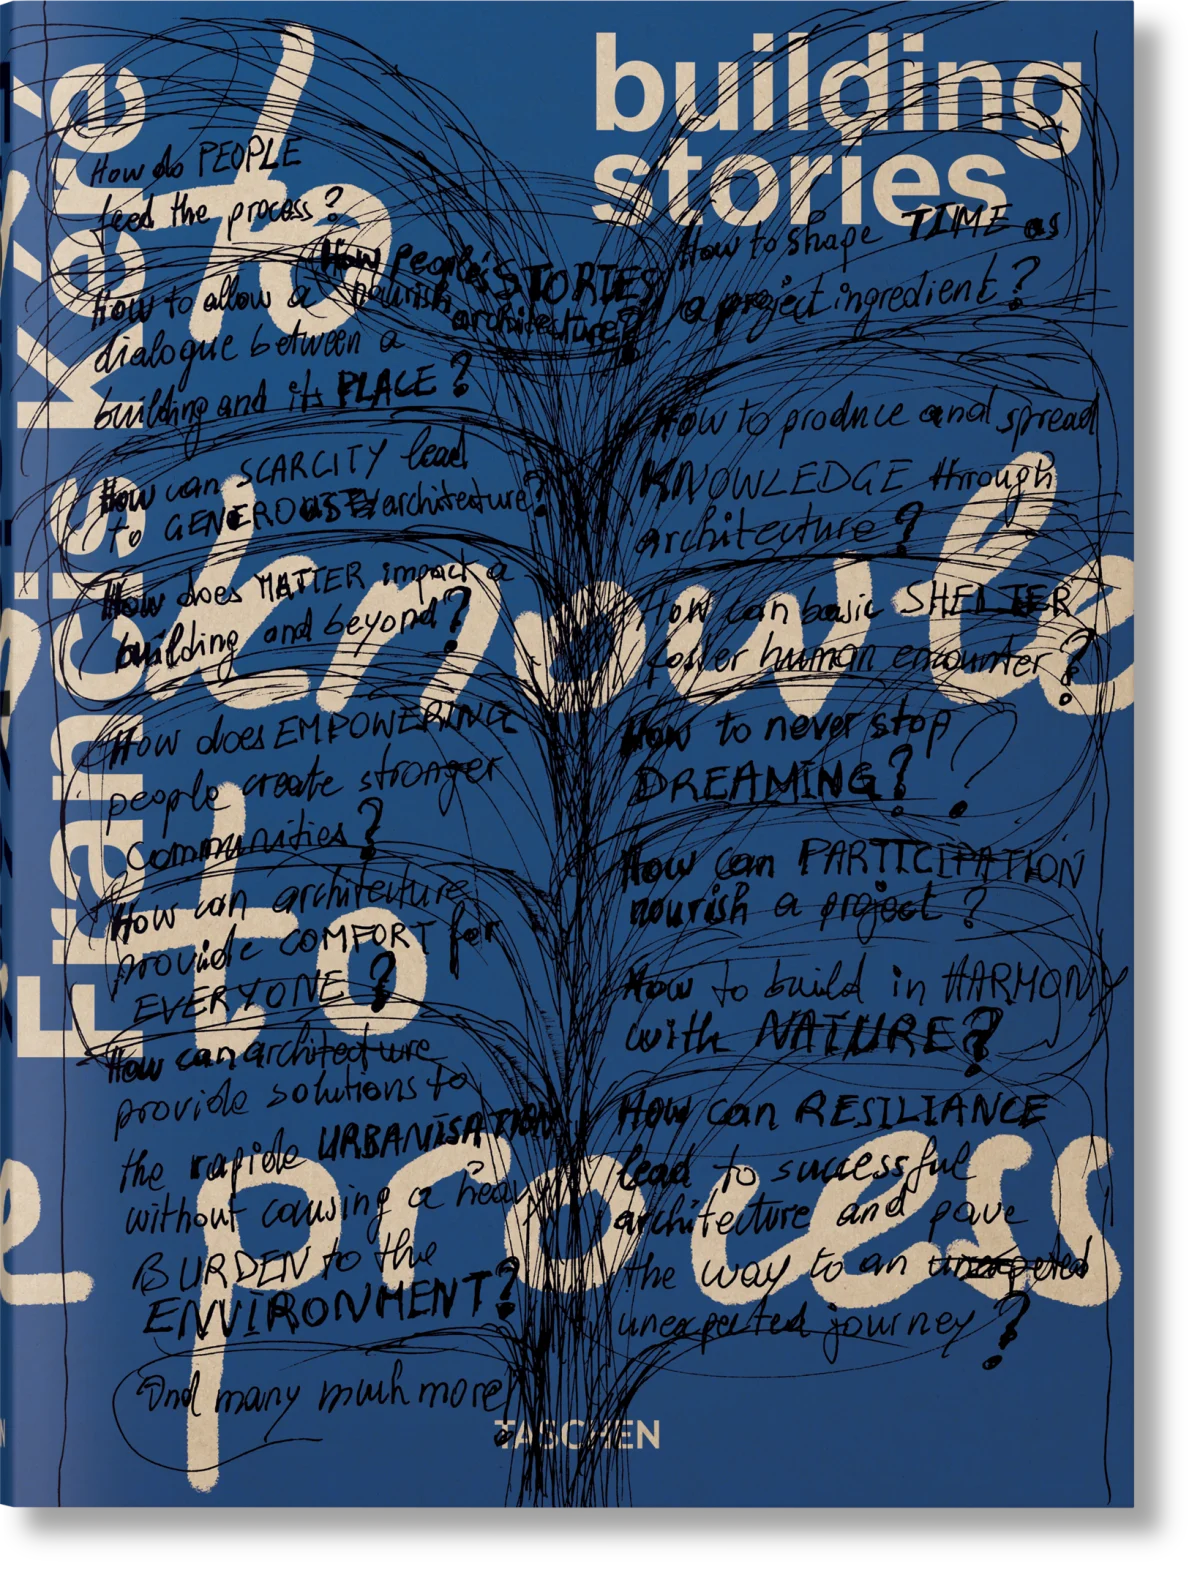 Francis Kéré
building
stories
to
knowle
to
process
How do PEOPLE
feed the process?
How people's STORIES
nourish
architecture?
How to allow a
dialogue between a
building and its PLACE?
How can SCARCITY lead
to GENEROUS architecture?
How does MATTER impact a
building and beyond?
How does EMPOWERING
people create stronger
communities?
How can architecture
provide COMFORT for
EVERYONE?
How can architecture
provide solutions to
the rapide URBANISATION
without causing a heavy
BURDEN to the
ENVIRONMENT?
And many much more!
How to shape TIME as
a project ingredient?
How to produce and spread
KNOWLEDGE through
architecture?
How can basic SHELTER
foster human encounter?
How to never stop
DREAMING?
How can PARTICIPATION
nourish a project?
How to build in HARMONY
with NATURE?
How can RESILIANCE
lead to successful
architecture and pave
the way to an
unexpected journey?
TASCHEN